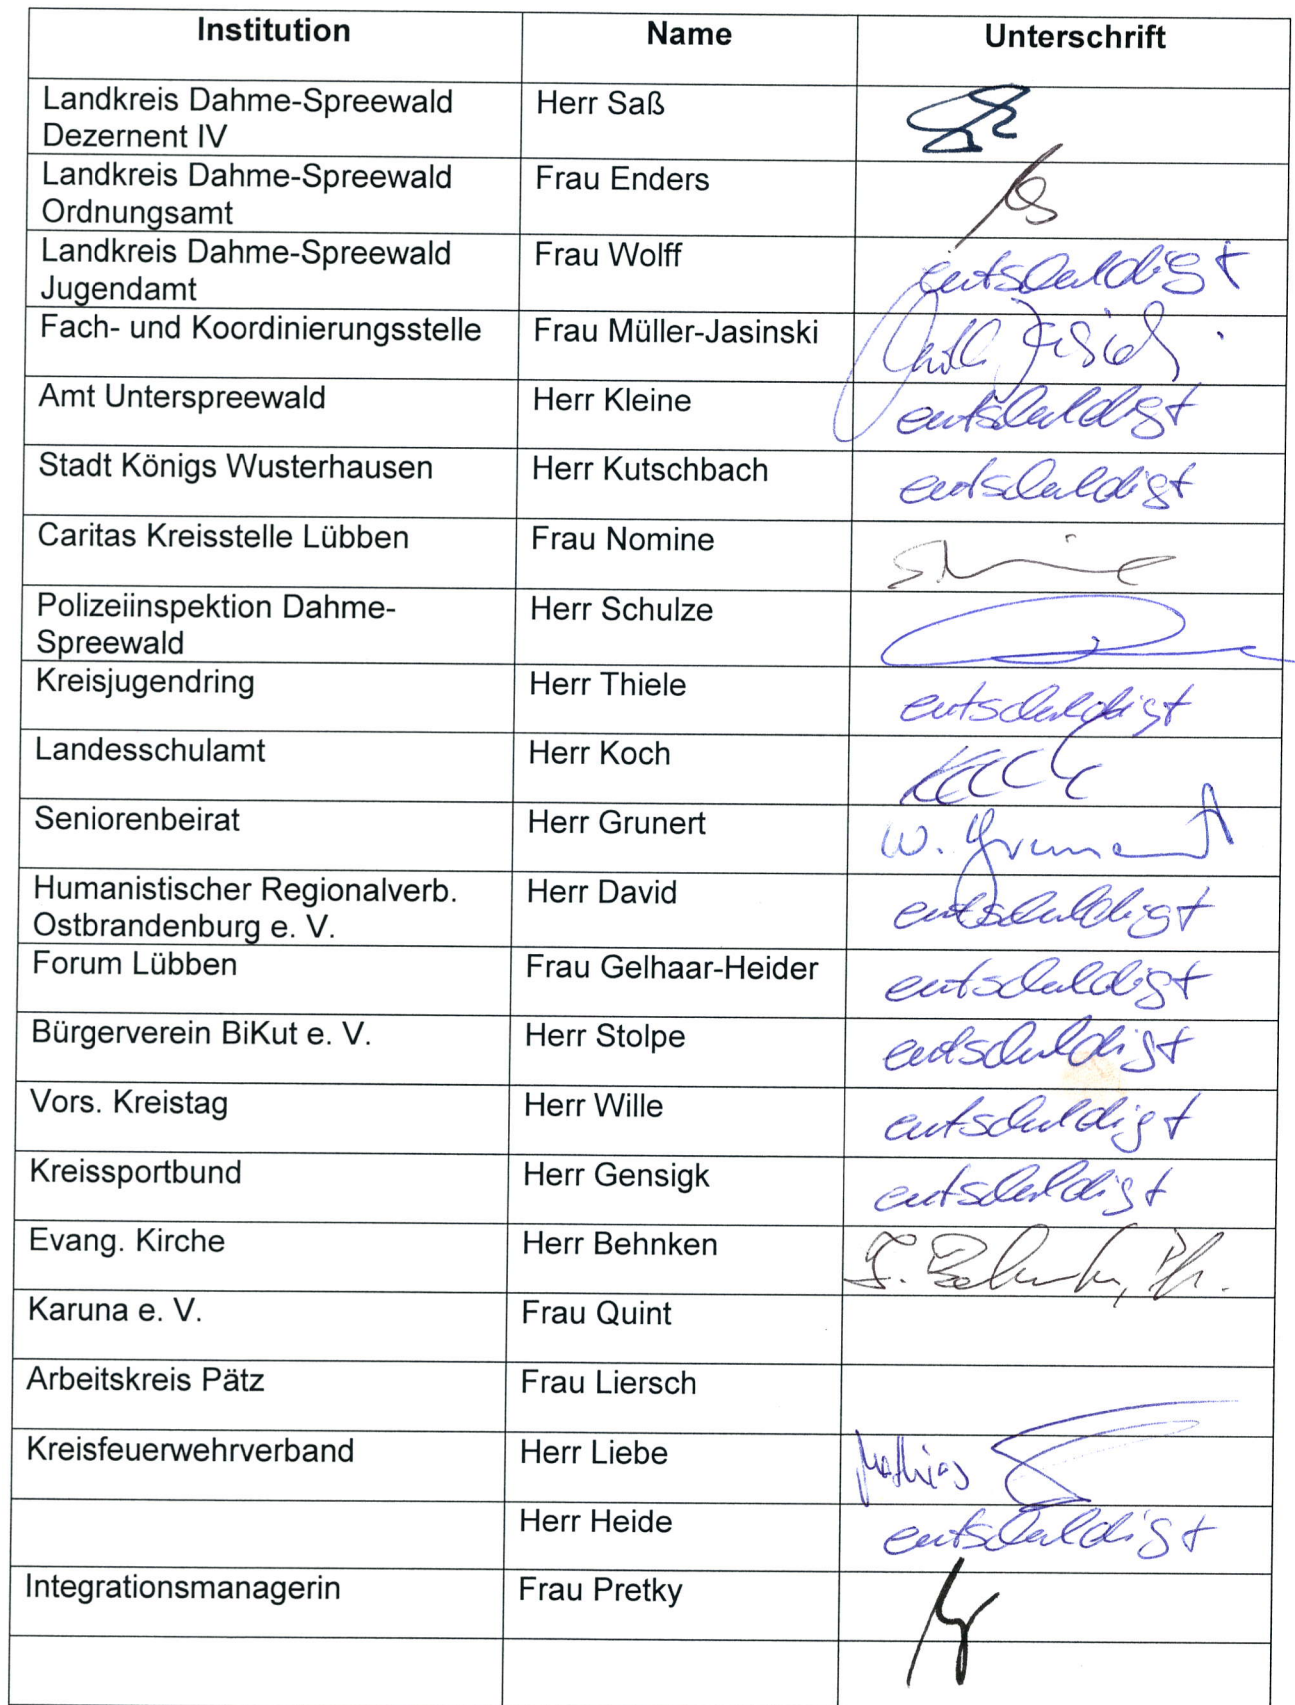 Institution Name Unterschrift
Landkreis Dahme-Spreewald Herr Saß
Dezernent IV
Landkreis Dahme-Spreewald Frau Enders
Ordnungsamt
Landkreis Dahme-Spreewald Frau Wolff entschuldigt
Jugendamt
Fach- und Koordinierungsstelle Frau Müller-Jasinski
Amt Unterspreewald Herr Kleine entschuldigt
Stadt Königs Wusterhausen Herr Kutschbach entschuldigt
Caritas Kreisstelle Lübben Frau Nomine
Polizeiinspektion Dahme- Herr Schulze
Spreewald
Kreisjugendring Herr Thiele entschuldigt
Landesschulamt Herr Koch
Seniorenbeirat Herr Grunert W. Grunert
Humanistischer Regionalverb. Herr David entschuldigt
Ostbrandenburg e. V.
Forum Lübben Frau Gelhaar-Heider entschuldigt
Bürgerverein BiKut e. V. Herr Stolpe entschuldigt
Vors. Kreistag Herr Wille entschuldigt
Kreissportbund Herr Gensigk entschuldigt
Evang. Kirche Herr Behnken
Karuna e. V. Frau Quint
Arbeitskreis Pätz Frau Liersch
Kreisfeuerwehrverband Herr Liebe Mathias
Herr Heide entschuldigt
Integrationsmanagerin Frau Pretky